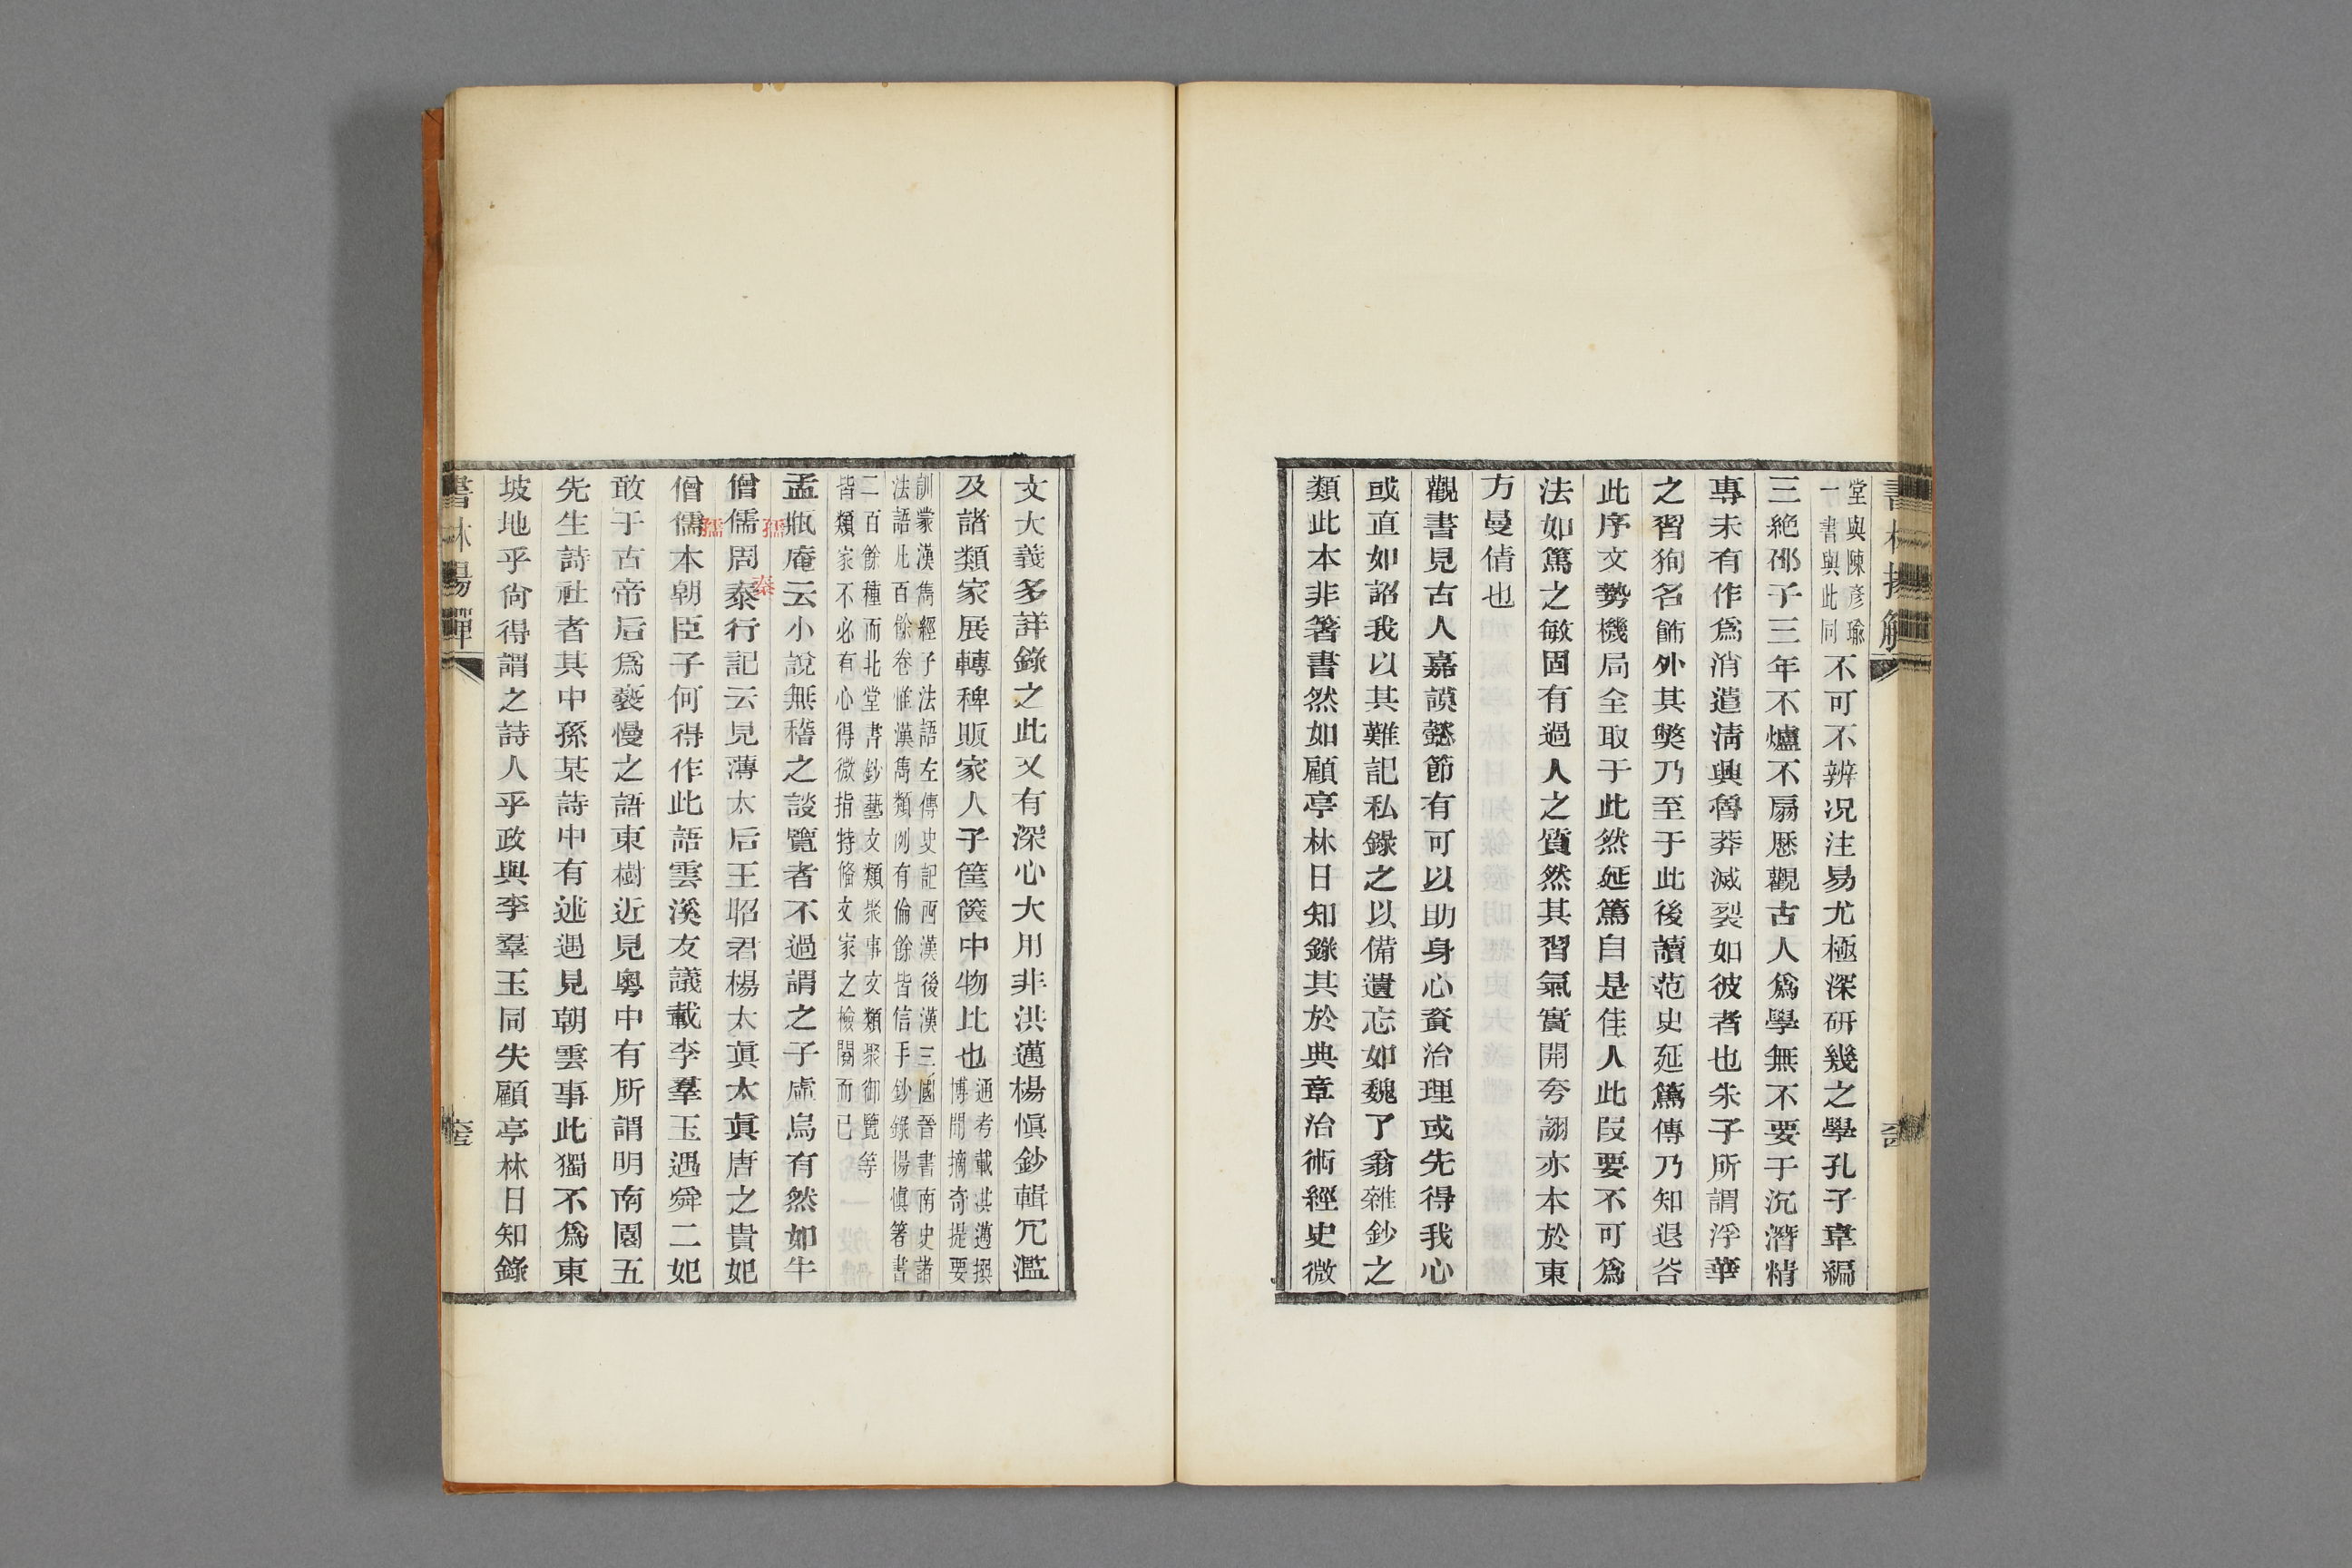 堂與陳彥瑜
一書與此同
不可不辨況注易尤極深研幾之學孔子韋編
三絕邵子三年不爐不扇厯觀古人爲學無不要于沉潛精
專未有作爲消遣淸興魯莽滅裂如彼者也朱子所謂浮華
之習狥名飾外其獘乃至于此後讀范史延篤傳乃知退谷
此序文勢機局全取于此然延篤自是佳人此叚要不可爲
法如篤之敏固有過人之質然其習氣實開夸詡亦本於東
方曼倩也
觀書見古人嘉謨懿節有可以助身心資治理或先得我心
或直如詔我以其難記私錄之以備遺忘如魏了翁雜鈔之
類此本非箸書然如顧亭林日知錄其於典章治術經史微
書林揚觶
文大義多詳錄之此又有深心大用非洪邁楊愼鈔輯冗濫
及諸類家展轉稗販家人子筐篋中物比也
通考載洪邁撰
博聞摘奇提要
訓蒙漢雋經子法語左傳史記西漢後漢三國晉書南史諸
法語凡百餘卷惟漢雋類列有倫餘皆信手鈔錄楊愼箸書
二百餘種而北堂書鈔藝文類聚事文類聚御覽等
皆類家不必有心得微指特偹文家之檢閱而已
孟瓶庵云小說無稽之談覽者不過謂之子虛烏有然如牛
僧儒周泰行記云見薄太后王昭君楊太眞太眞唐之貴妃
孺
秦
僧儒本朝臣子何得作此語雲溪友議載李羣玉遇舜二妃
孺
敢于古帝后爲褻慢之語東樹近見粵中有所謂明南園五
先生詩社者其中孫某詩中有述遇見朝雲事此獨不爲東
坡地乎尙得謂之詩人乎政與李羣玉同失顧亭林日知錄
書林揚觶